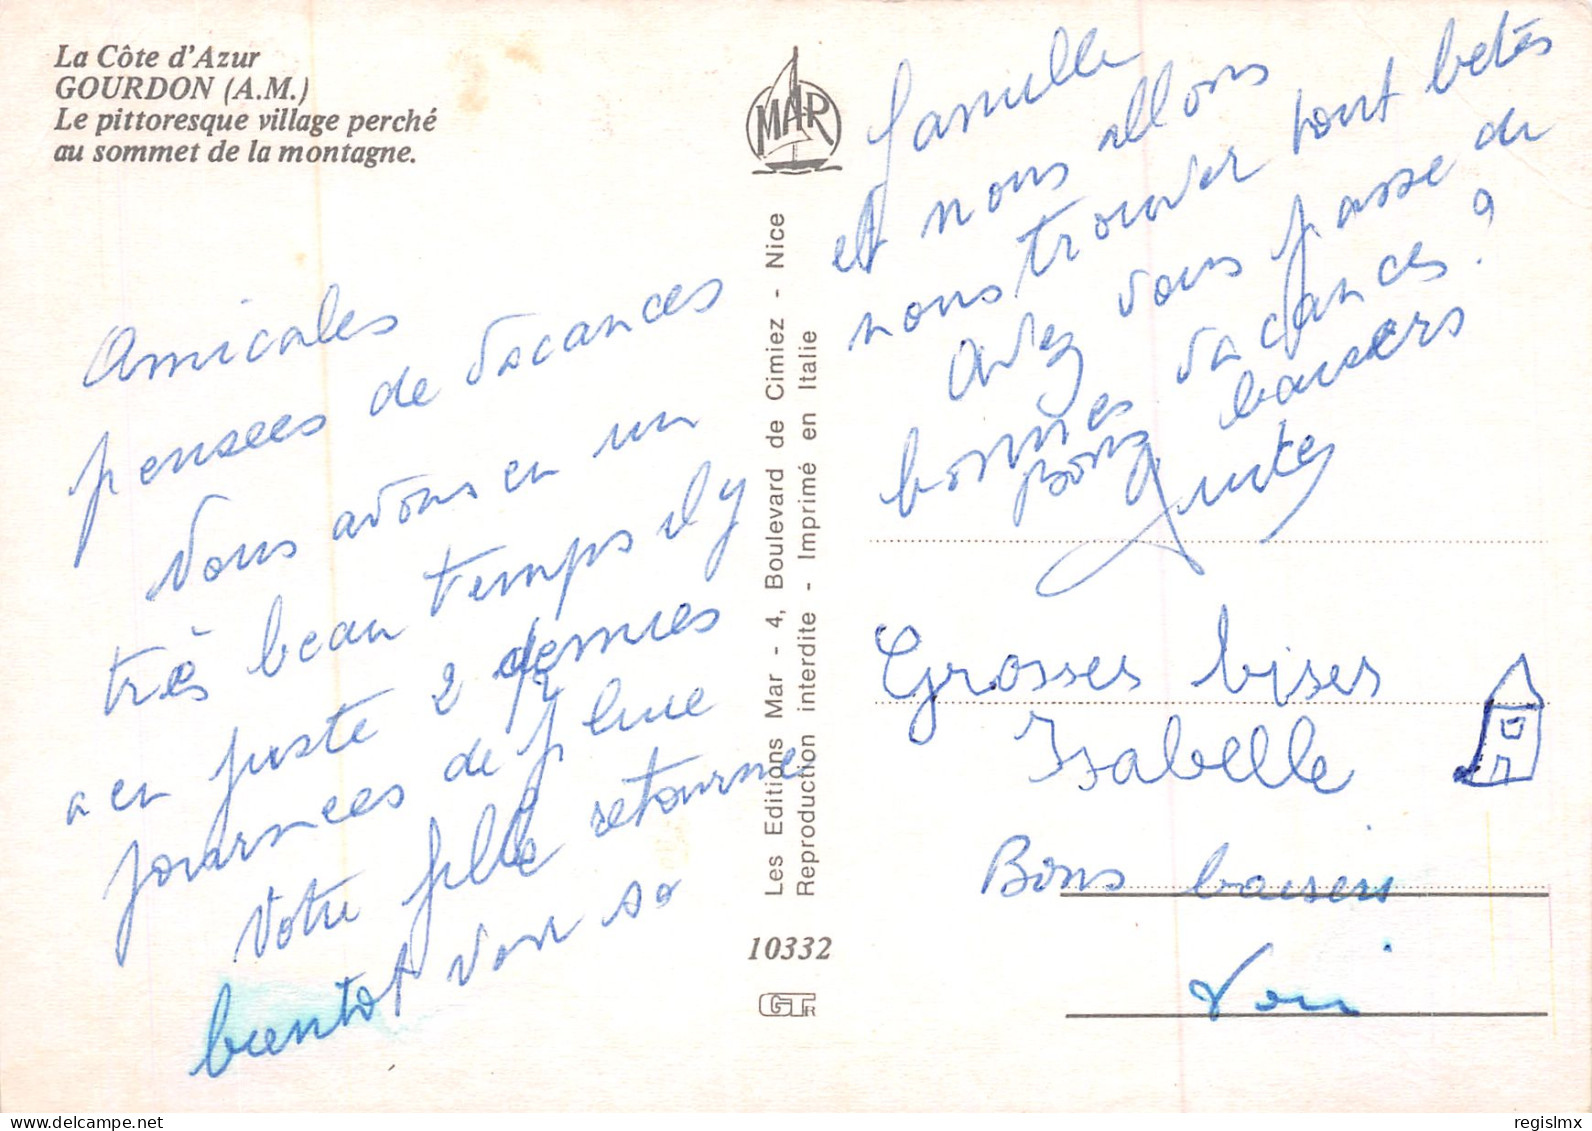 La Côte d'Azur
GOURDON (A.M.)
Le pittoresque village perché
au sommet de la montagne.
Amicales
pensees de vacances
Nous avons eu un
très beau temps il y
a eu juste 2 demies
journees de pluie
Votre fille retourne
bientot voir sa
MAR
Les Editions Mar - 4, Boulevard de Cimiez - Nice
Reproduction interdite - Imprimé en Italie
10332
GT
famille
et nous allons
nous trouver tout betes
Avez vous passe de
bonnes vacances ?
Bons baisers
Grosses bises
Isabelle
Bons baisers
regislmx